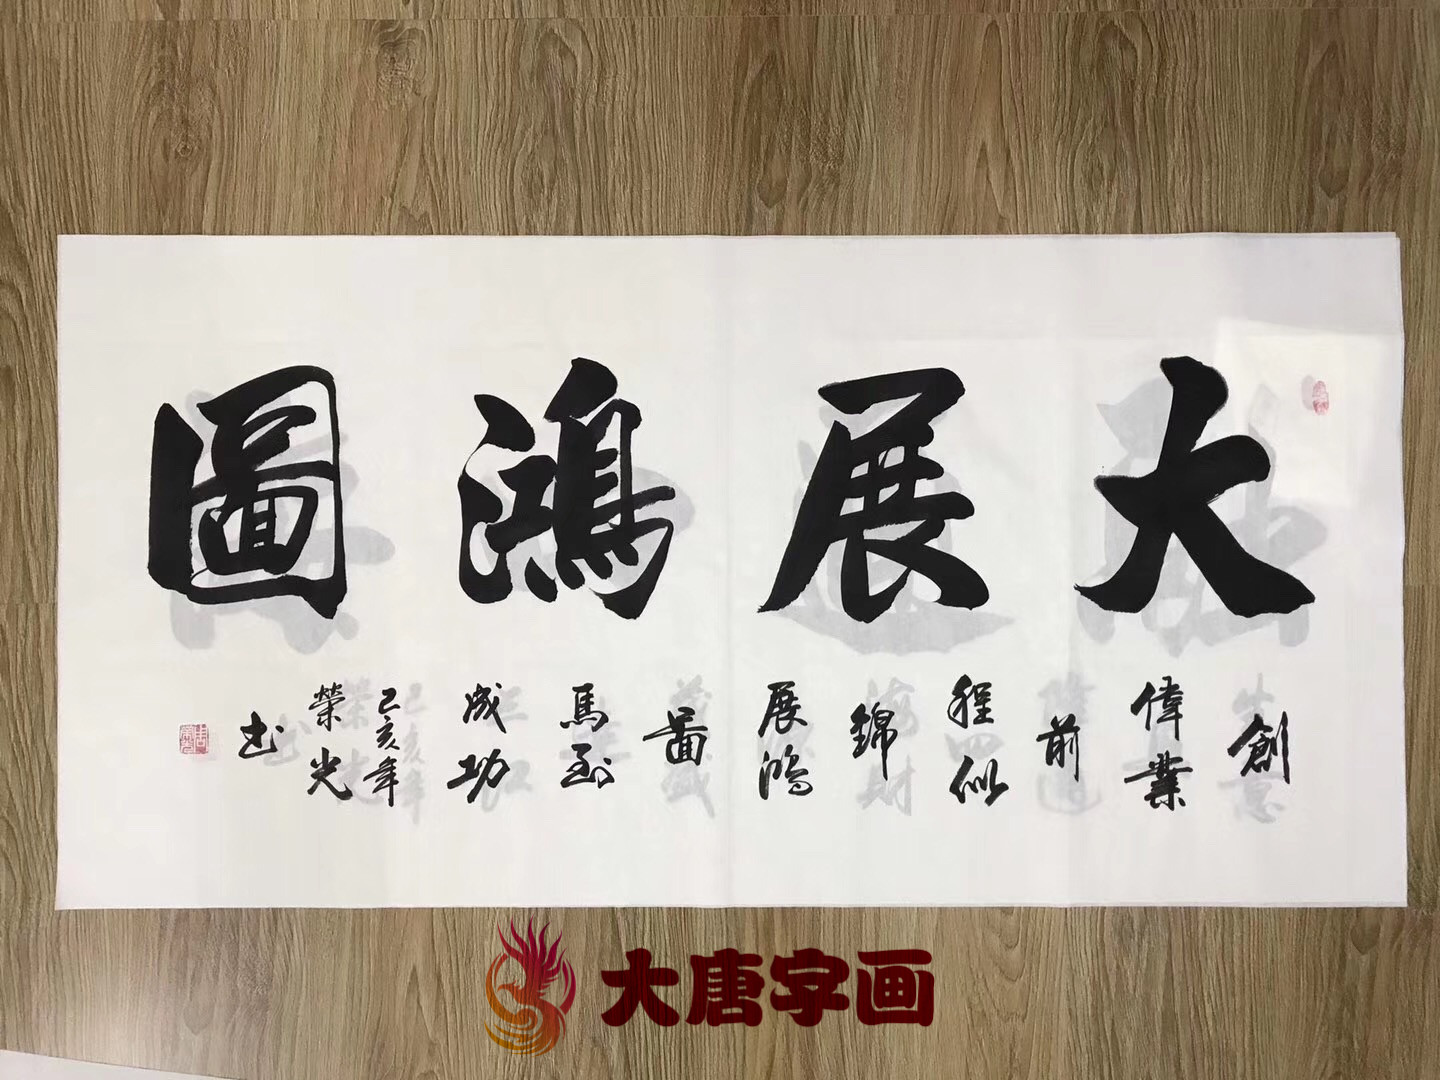 大展鴻圖
創
偉業
前
程似
錦
展鴻
圖
馬到
成功
己亥年
榮光
书
大唐字画